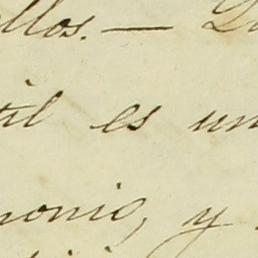 llos.—
til es un
monio, y